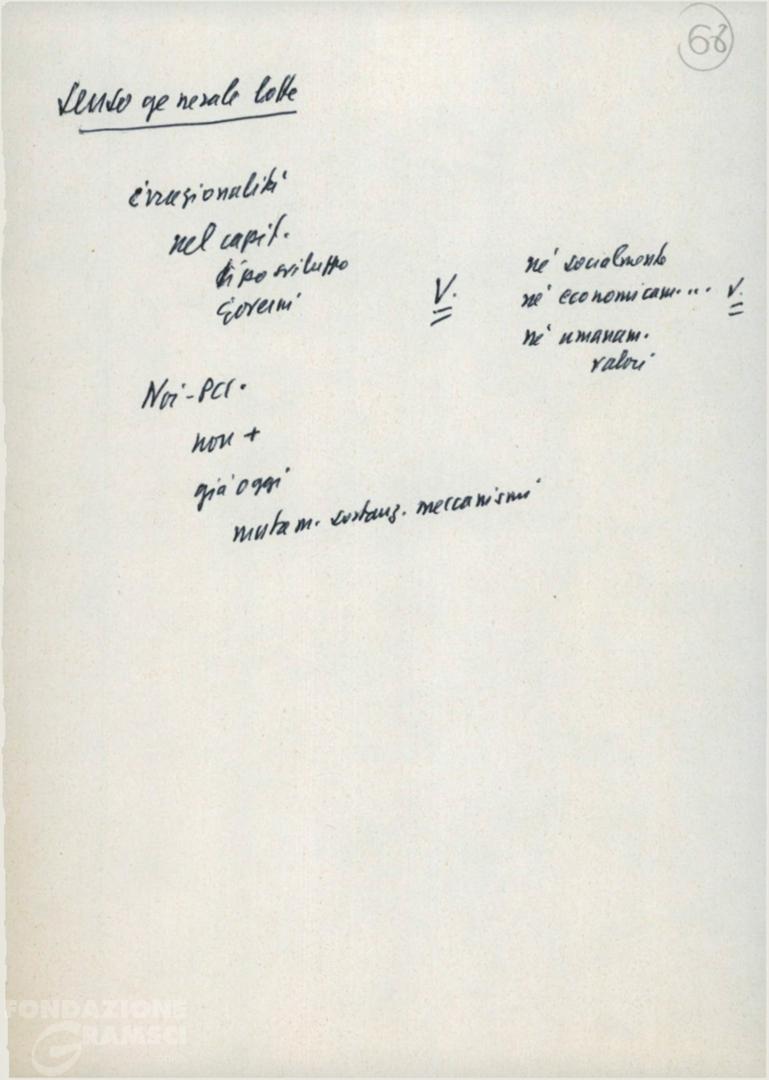 68
senso generale lotte
irrazionalità
nel capit.
tipo sviluppo
governi
V.
né socialmente
né economicam... V.
né umanam.
valori
Noi-PCI.
non +
già oggi
mutam. sostanz. meccanismi
FONDAZIONE
GRAMSCI